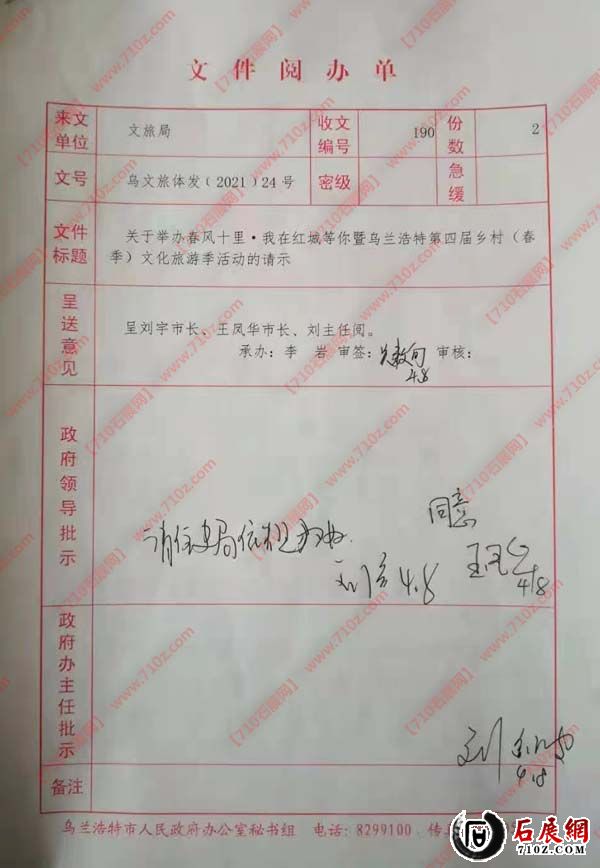 文件阅办单
来文单位 文旅局 收文编号 190 份数 2
文号 乌文旅体发〔2021〕24号 密级 急缓
文件标题 关于举办春风十里·我在红城等你暨乌兰浩特第四届乡村（春
季）文化旅游季活动的请示
呈送意见 呈刘宇市长、王凤华市长、刘主任阅。
承办：李 岩 审签： 审核：
4.8
政府领导批示
同意
请住建局依程办
4.8
4.8
政府办主任批示
刘
4.8
备注
乌兰浩特市人民政府办公室秘书组 电话：8299100
【710石展网】www.710z.com
石展網